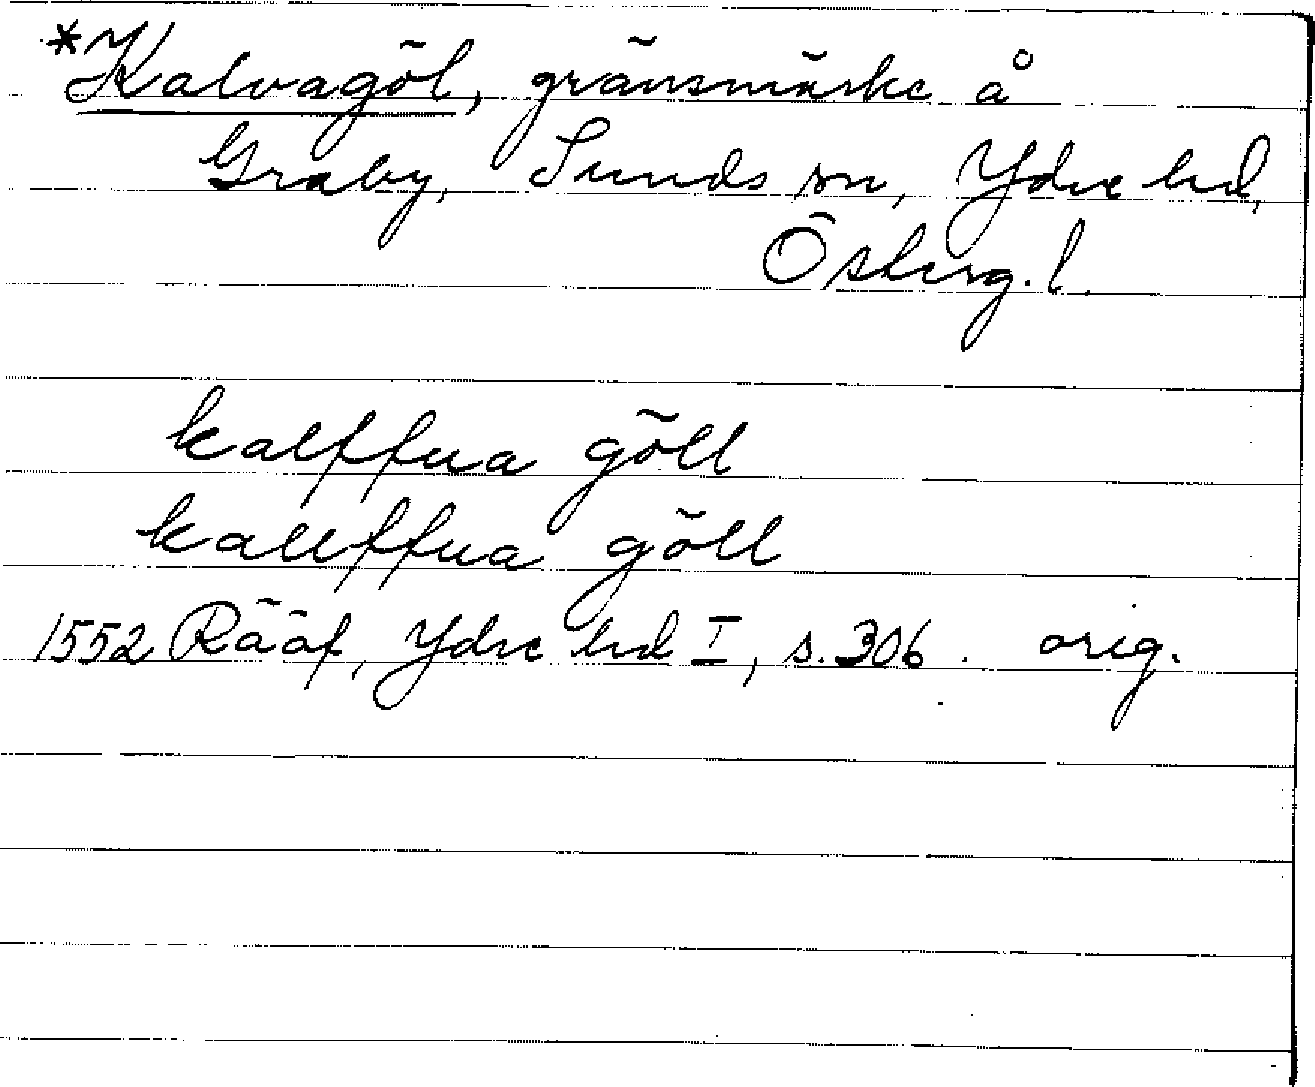 *Kalvagöl, gränsmärke å
Graby, Sunds sn, Ydre hd,
Österg. l.
kalffua göll
kallffua göll
1552 Rääf, Ydre hd I, s. 306. orig.